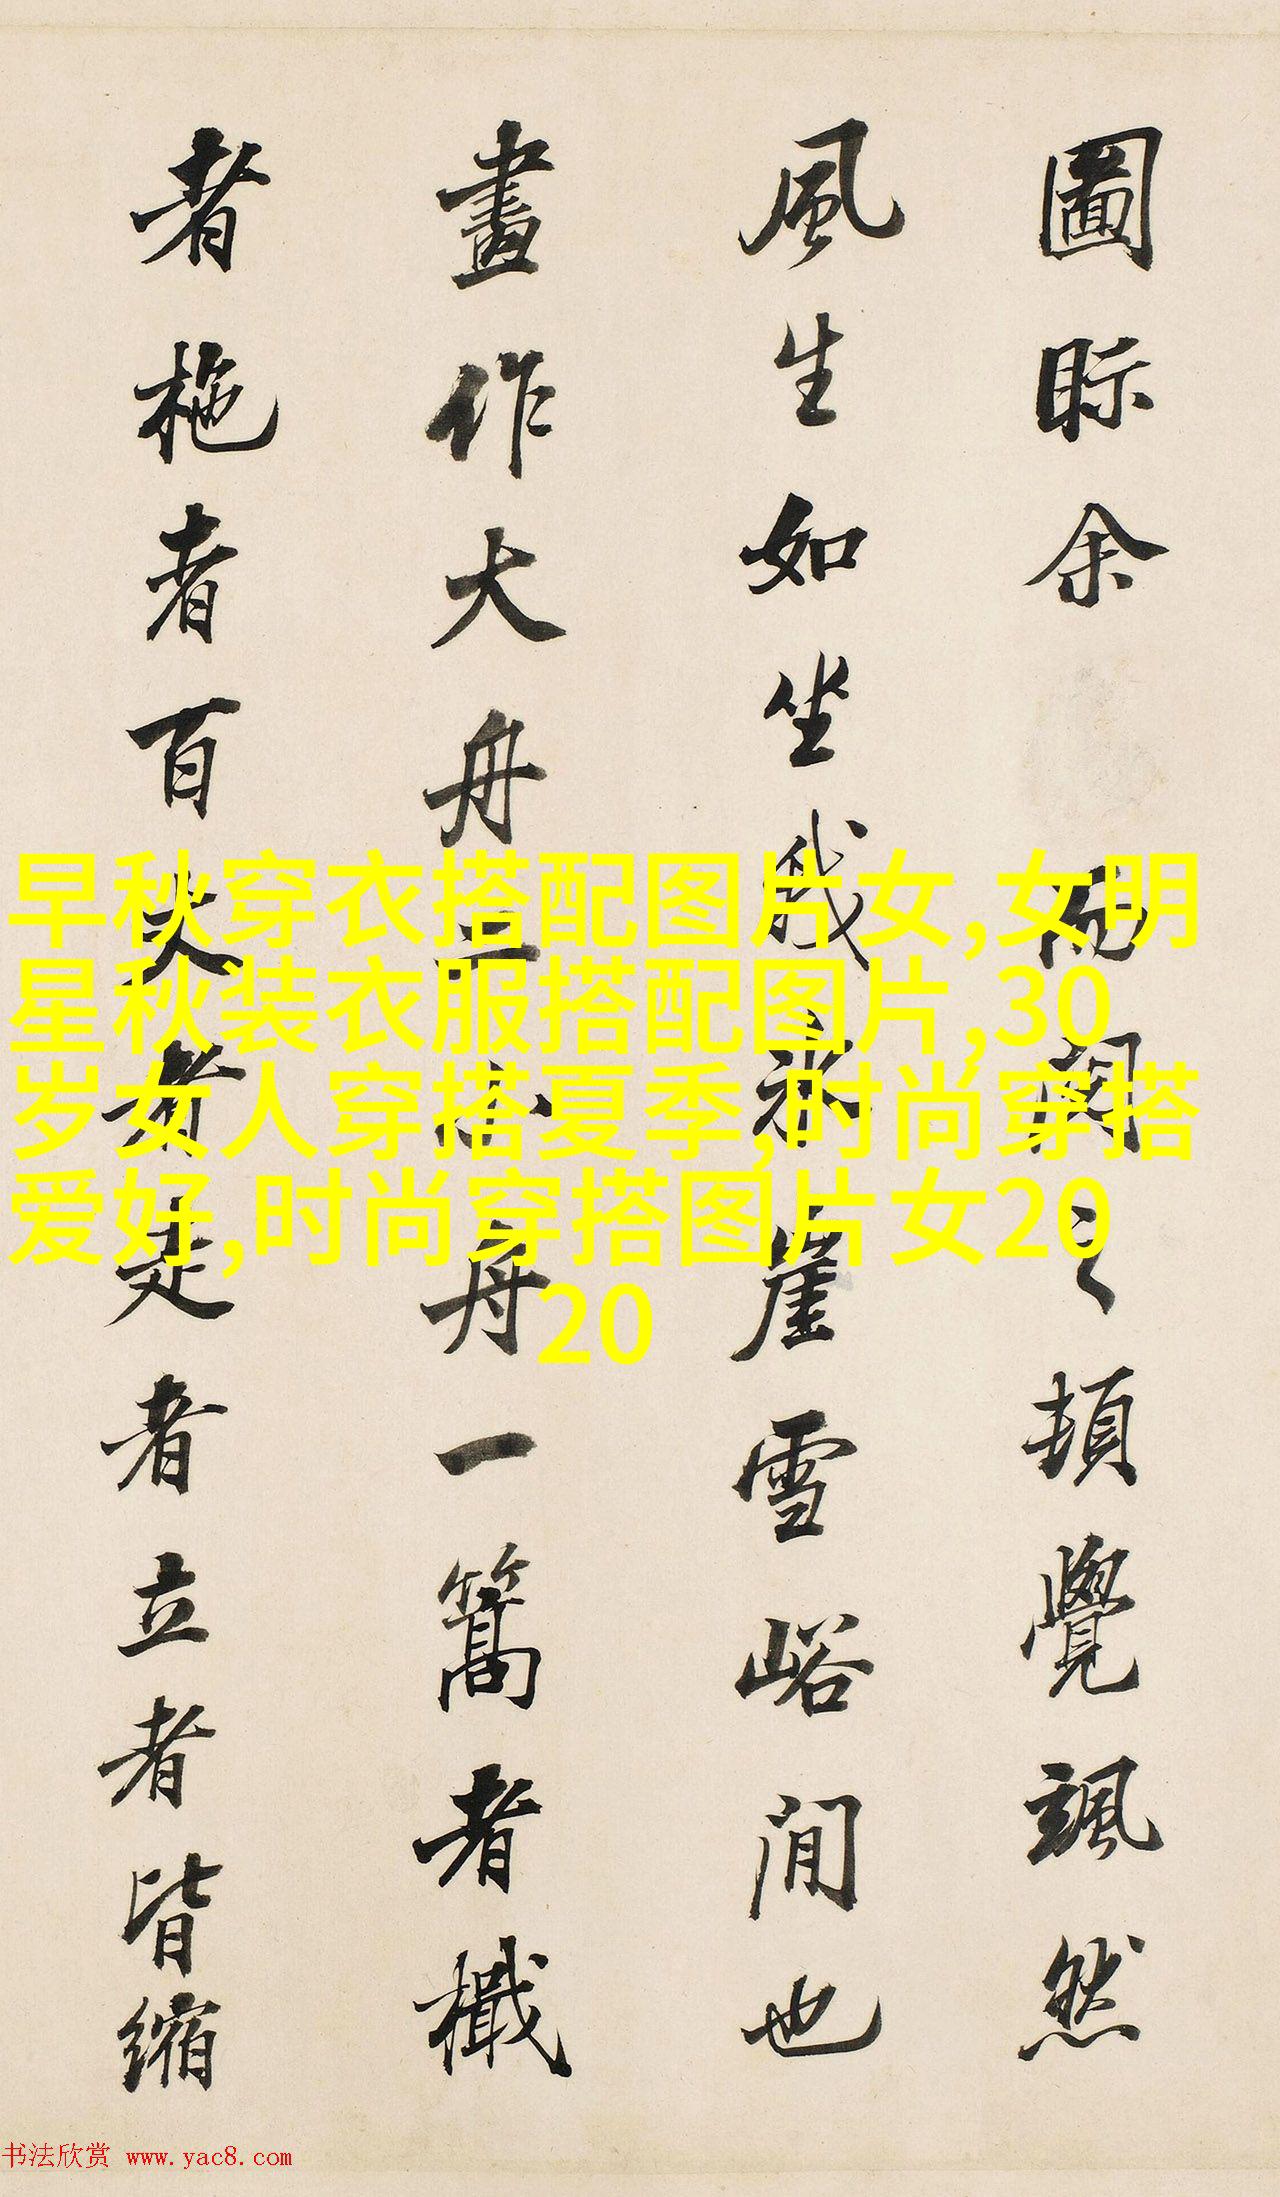 圖眎余而閱之頓覺颯然
風生如坐我氷崖雪峪間也
畫作大舟二小舟一篙者檝
者柂者百丈者走者立者皆縮
早秋穿衣搭配图片女,女明
星秋装衣服搭配图片,30
岁女人穿搭夏季,时尚穿搭
爱好,时尚穿搭图片女20
20
书法欣赏 www.yac8.com